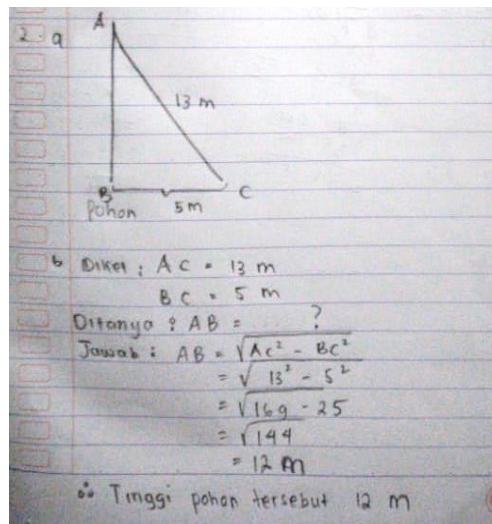 2. a
A
13 m
B C
Pohon 5 m
b Diket : AC = 13 m
BC = 5 m
Ditanya : AB = ?
Jawab : AB = √AC² - BC²
= √13² - 5²
= √169 - 25
= √144
= 12 m
∴ Tinggi pohon tersebut 12 m